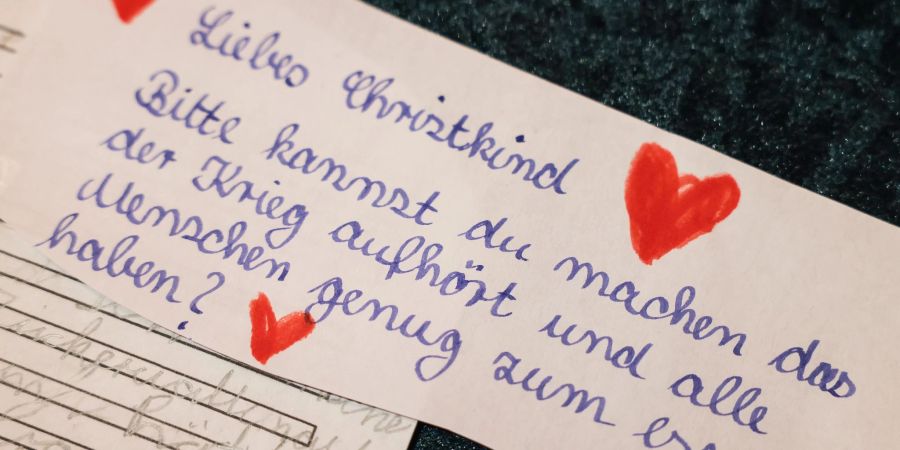 Liebes Christkind
Bitte kannst du machen das
der Krieg aufhört und alle
Menschen genug zum
haben?